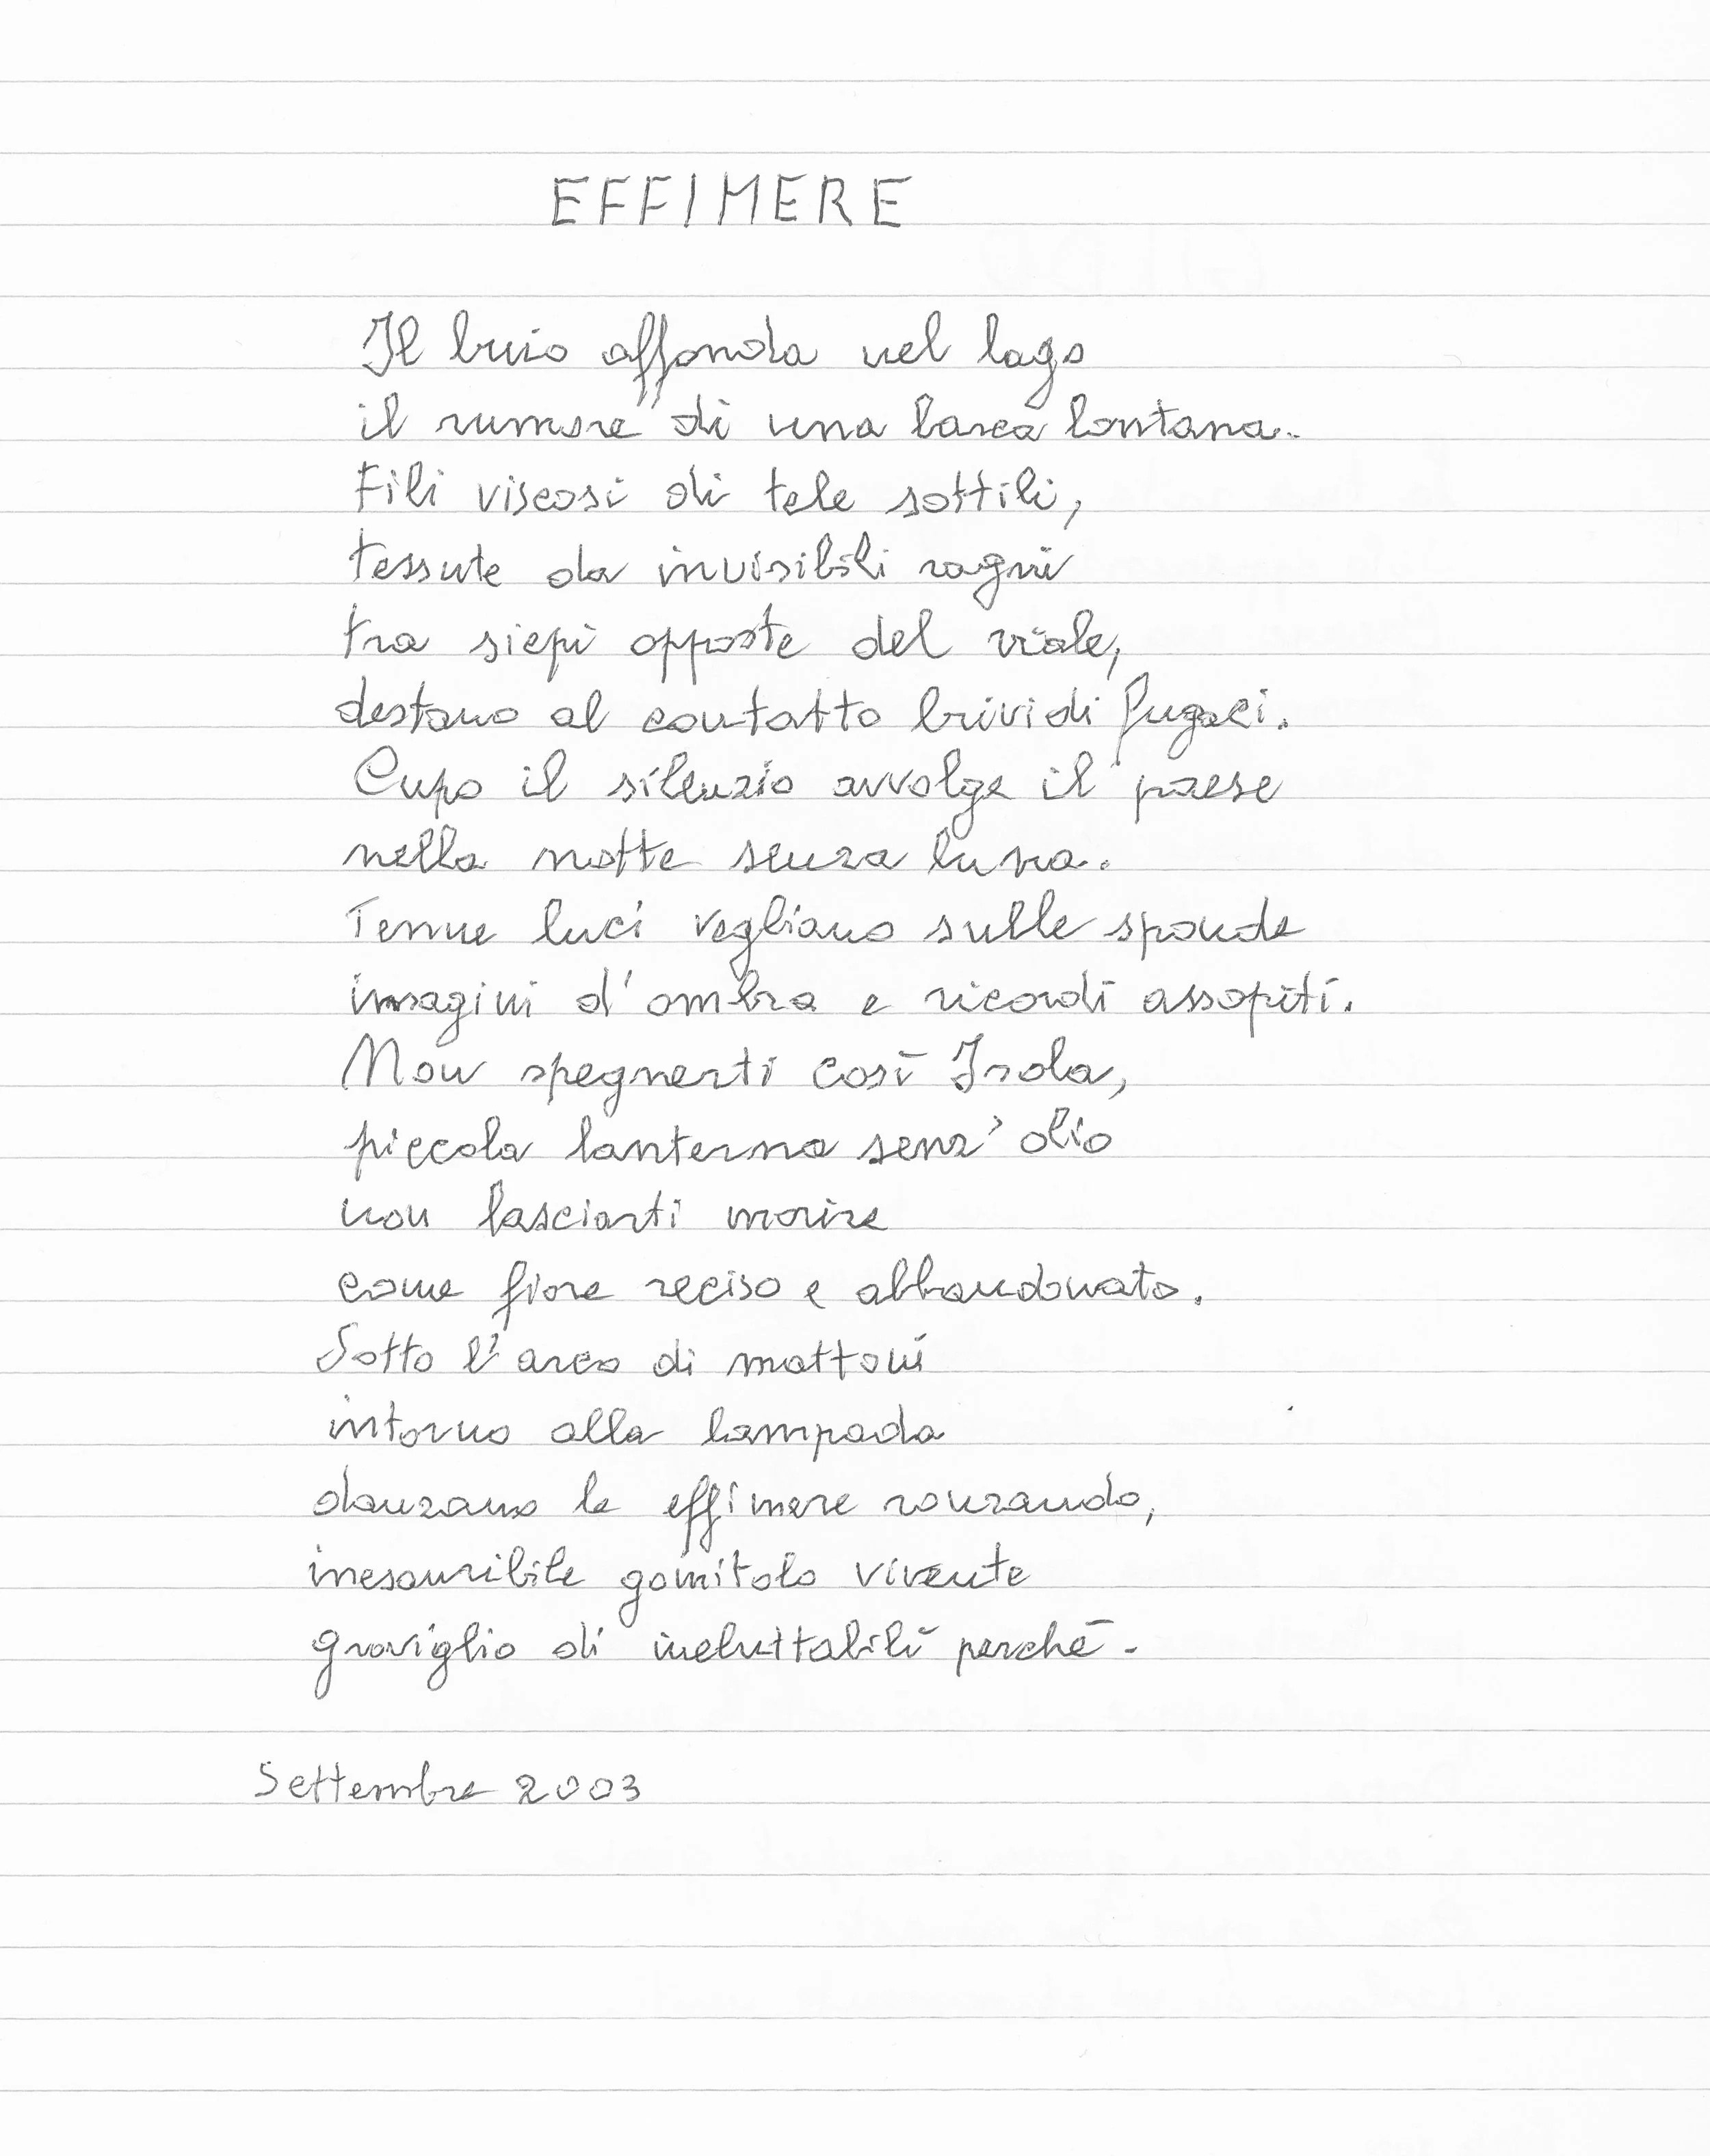 EFFIMERE
Il buio affonda nel lago
il rumore di una barca lontana.
Fili viscosi di tele sottili,
tessute da invisibili ragni
tra siepi opposte del viale,
destano al contatto brividi fugaci.
Cupo il silenzio avvolge il paese
nella notte senza luna.
Tenue luci vegliano sulle sponde
imagini d'ombra e ricordi assopiti.
Non spegnerti così Isola,
piccola lanterna senz'olio
non lasciarti morire
come fiore reciso e abbandonato.
Sotto l'arco di mattoni
intorno alla lampada
danzano le effimere ronzando,
inesauribile gomitolo vivente
groviglio di ineluttabili perché.
Settembre 2003